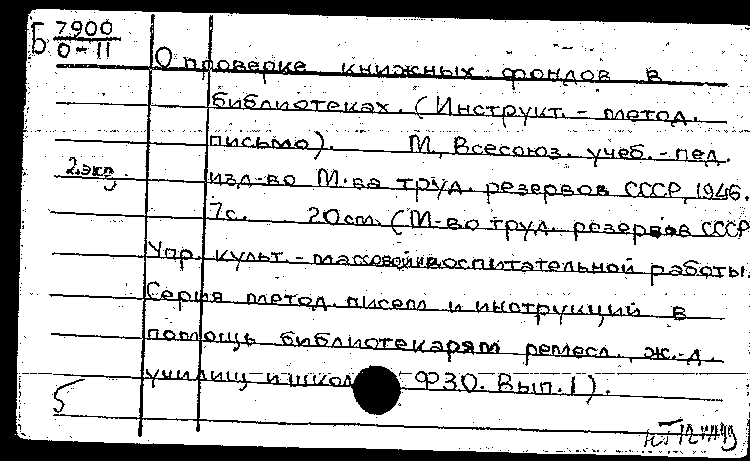 Б 7900
0-11
О проверке книжных фондов в
библиотеках. (Инструкт. - метод.
письмо). М, Всесоюз. учеб. - пед.
2.экз.
изд-во М-ва труд. резервов СССР, 1946.
7с. 20см. (М-во труд. резервов СССР
Упр. культ. - массовой и воспитательной работы.
Серия метод. писем и инструкций в
помощь библиотекарям ремесл., ж.-д.
училищ и школ ФЗО. Вып. 1).
5